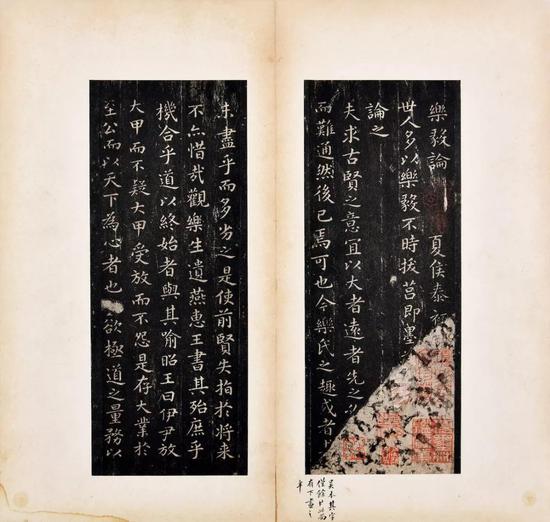 樂毅論 夏侯泰
世人多以樂毅不時拔莒即墨
論之
夫求古賢之意宜以大者遠者先之必
而難通然後已焉可也今樂氏之趣或者
未盡乎而多劣之是使前賢失指於將來
不亦惜哉觀樂生遺燕惠王書其殆庶乎
機合乎道以終始者與其喻昭王曰伊尹放
大甲而不疑大甲受放而不怨是存大業於
至公而以天下為心者也 欲極道之量務以
吴本其字
有下畫之
半